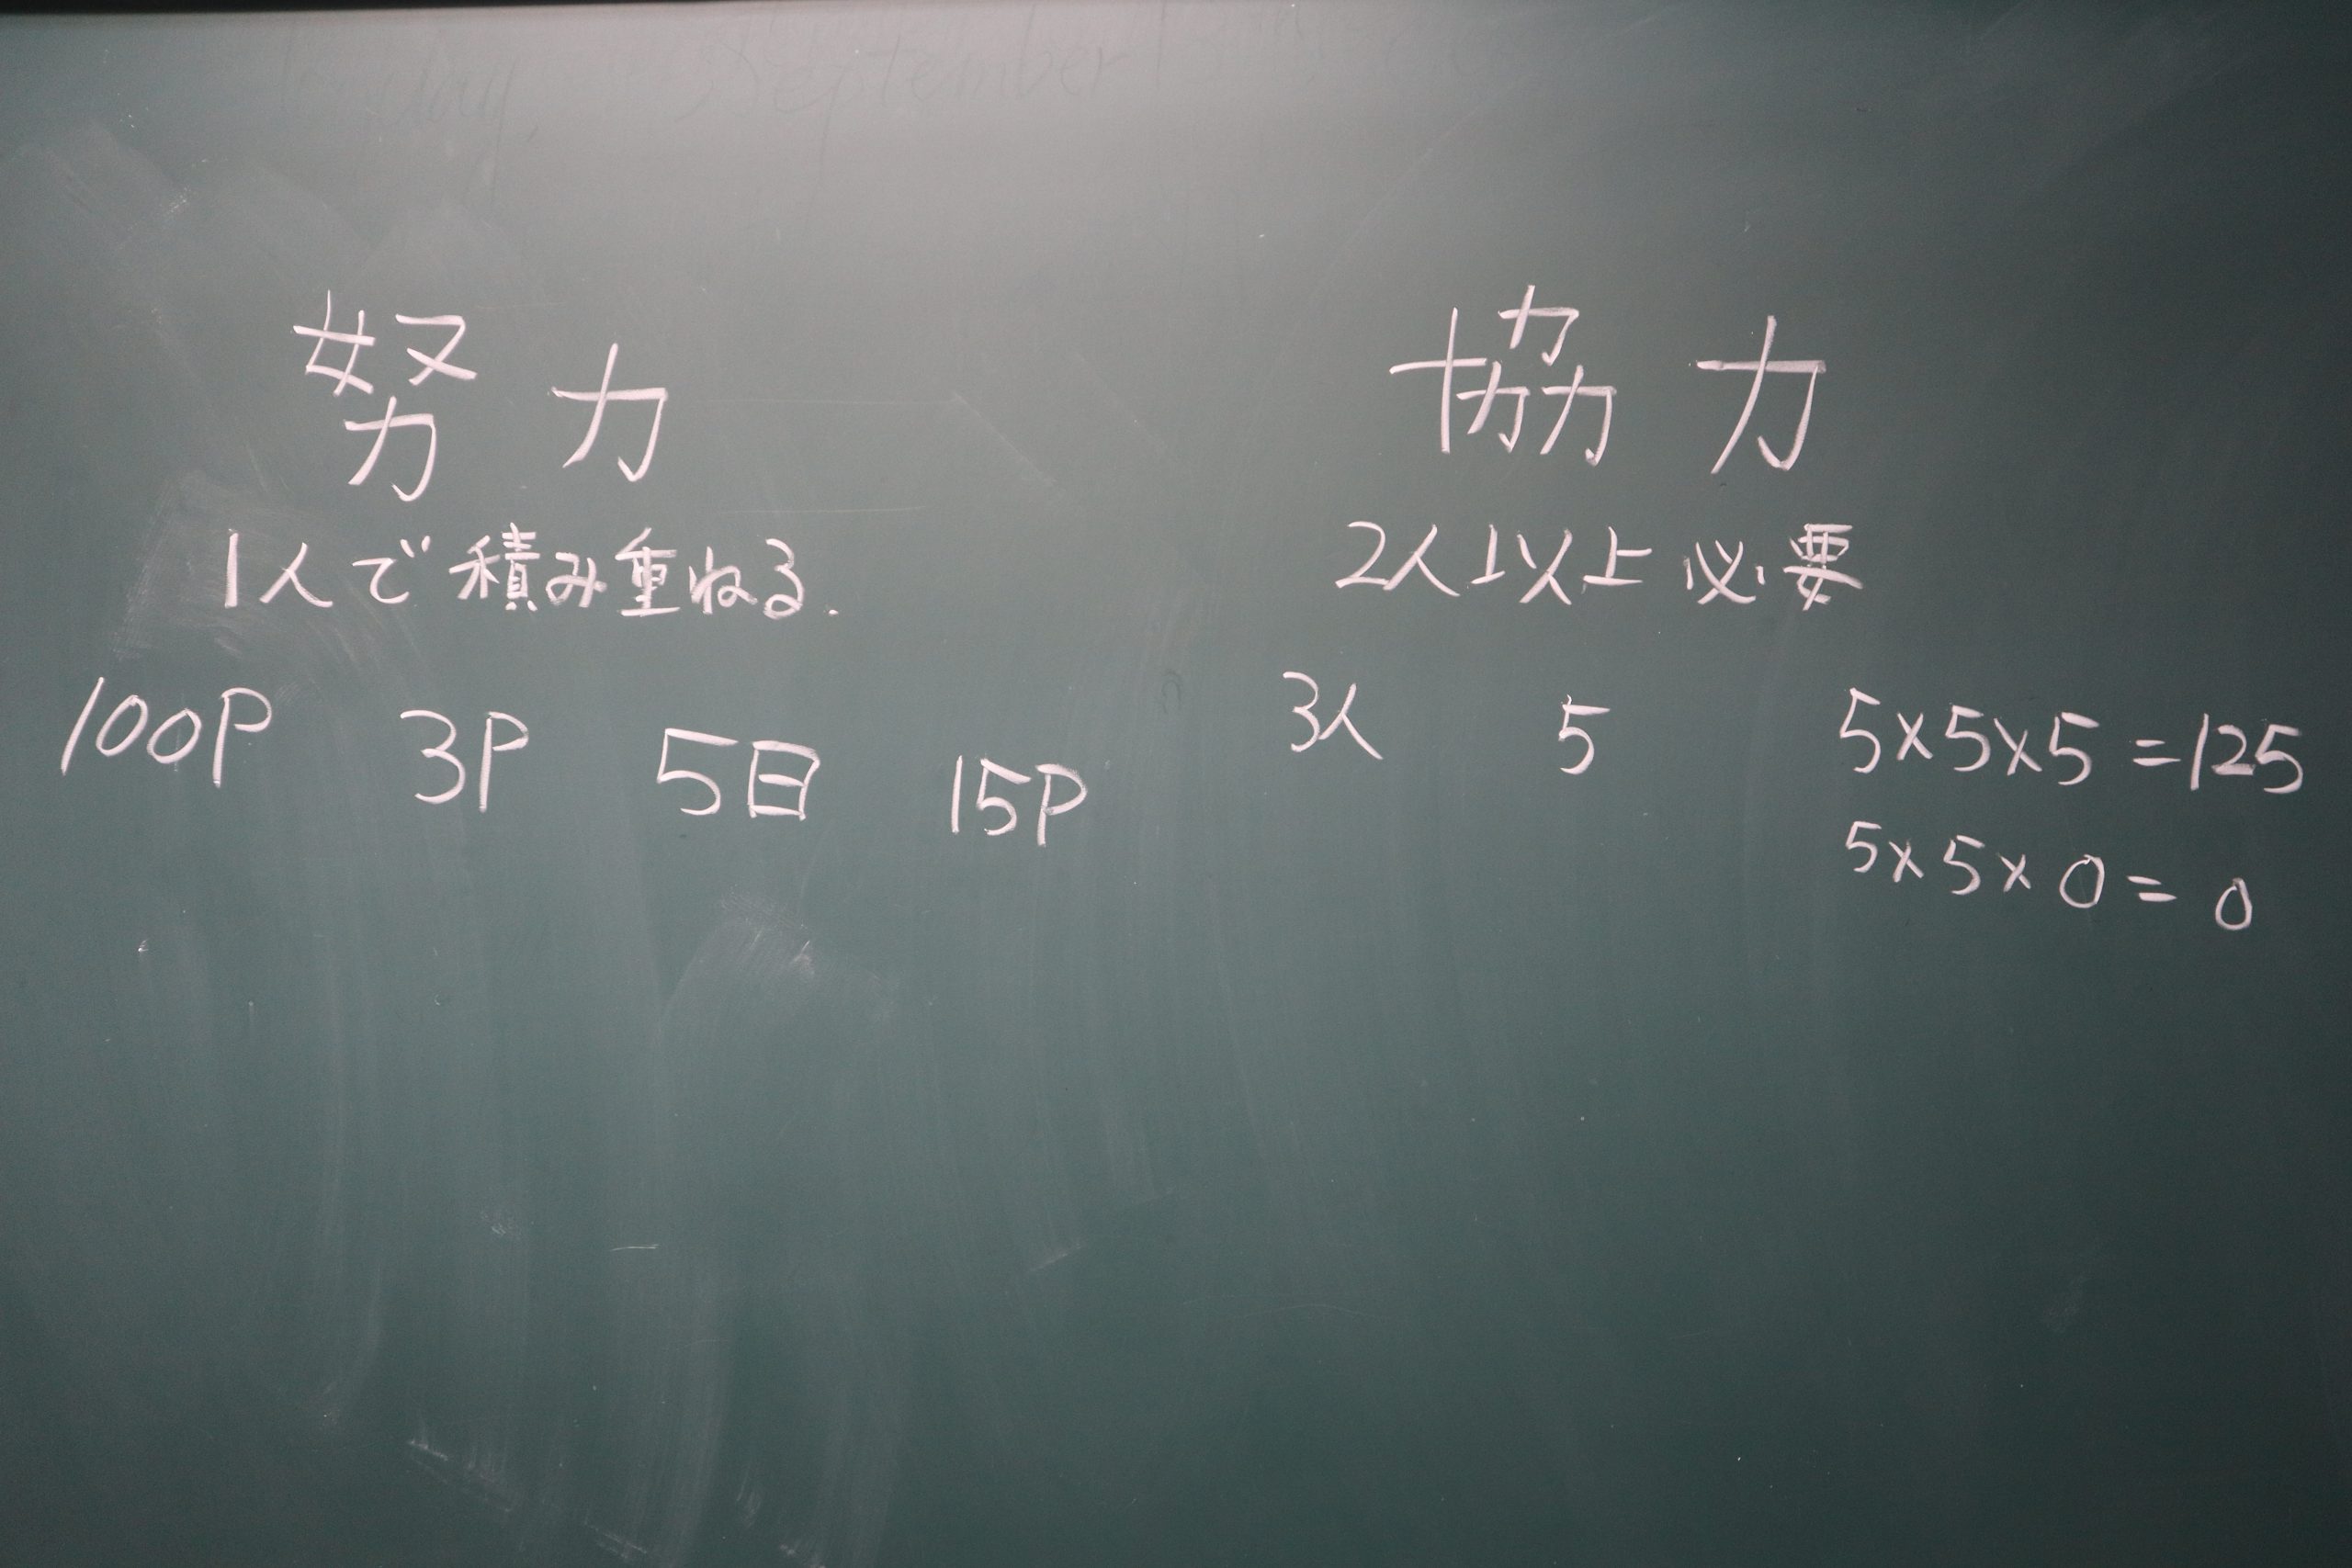 September
努力
1人で積み重ねる.
100P 3P 5日 15P
協力
2人以上必要
3人 5 5×5×5=125
5×5×0=0